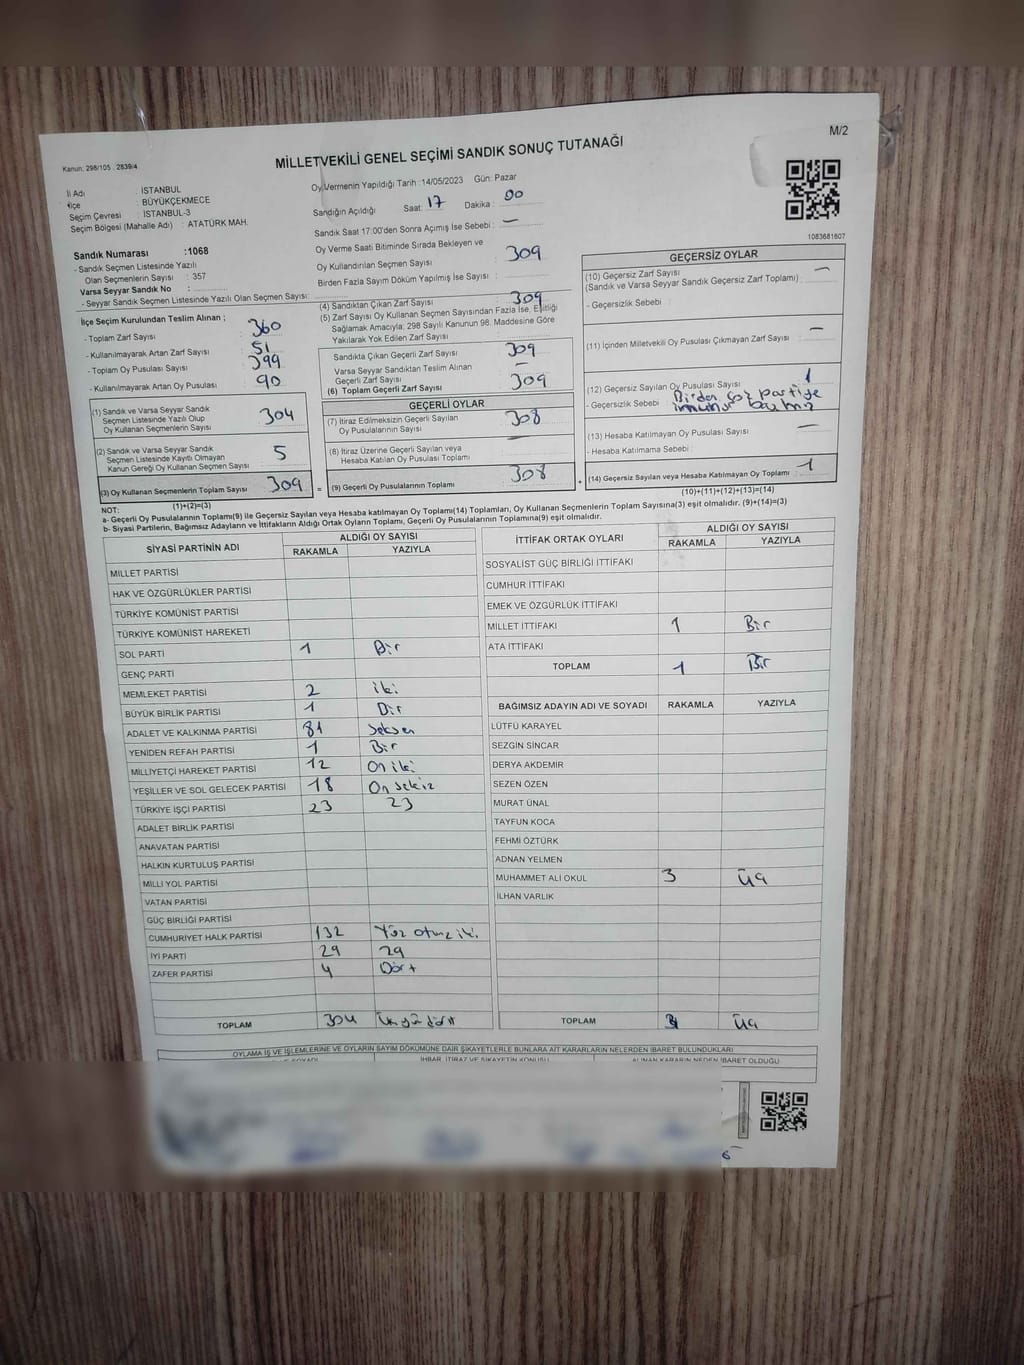 M/2
Kanun: 298/105 . 2839/4
MİLLETVEKİLİ GENEL SEÇİMİ SANDIK SONUÇ TUTANAĞI
İl Adı : İSTANBUL
İlçe : BÜYÜKÇEKMECE
Seçim Çevresi : İSTANBUL-3
Seçim Bölgesi (Mahalle Adı) : ATATÜRK MAH.
Oy Vermenin Yapıldığı Tarih : 14/05/2023 Gün: Pazar
Sandığın Açıldığı Saat: 17 Dakika : 00
Sandık Saat 17:00'den Sonra Açımış İse Sebebi : —
Sandık Numarası :1068
- Sandık Seçmen Listesinde Yazılı
Olan Seçmenlerin Sayısı : 357
Varsa Seyyar Sandık No :
- Seyyar Sandık Seçmen Listesinde Yazılı Olan Seçmen Sayısı:
Oy Verme Saati Bitiminde Sırada Bekleyen ve
Oy Kullandırılan Seçmen Sayısı 309
Birden Fazla Sayım Döküm Yapılmış İse Sayısı :
İlçe Seçim Kurulundan Teslim Alınan ;
- Toplam Zarf Sayısı 360
- Kullanılmayarak Artan Zarf Sayısı 51
- Toplam Oy Pusulası Sayısı 399
- Kullanılmayarak Artan Oy Pusulası 90
(1) Sandık ve Varsa Seyyar Sandık
Seçmen Listesinde Yazılı Olup
Oy Kullanan Seçmenlerin Sayısı 304
(2) Sandık ve Varsa Seyyar Sandık
Seçmen Listesinde Kayıtlı Olmayan
Kanun Gereği Oy Kullanan Seçmen Sayısı 5
(3) Oy Kullanan Seçmenlerin Toplam Sayısı 309 =
(1)+(2)=(3)
(4) Sandıktan Çıkan Zarf Sayısı 309
(5) Zarf Sayısı Oy Kullanan Seçmen Sayısından Fazla İse, Eşitliği
Sağlamak Amacıyla; 298 Sayılı Kanunun 98. Maddesine Göre
Yakılarak Yok Edilen Zarf Sayısı :
Sandıkta Çıkan Geçerli Zarf Sayısı 309
Varsa Seyyar Sandıktan Teslim Alınan
Geçerli Zarf Sayısı —
(6) Toplam Geçerli Zarf Sayısı 309
GEÇERLİ OYLAR
(7) İtiraz Edilmeksizin Geçerli Sayılan
Oy Pusulalarının Sayısı 308
(8) İtiraz Üzerine Geçerli Sayılan veya
Hesaba Katılan Oy Pusulası Toplamı —
(9) Geçerli Oy Pusulalarının Toplamı 308 +
1083681607
GEÇERSİZ OYLAR
(10) Geçersiz Zarf Sayısı —
(Sandık ve Varsa Seyyar Sandık Geçersiz Zarf Toplamı) :
- Geçersizlik Sebebi :
(11) İçinden Milletvekili Oy Pusulası Çıkmayan Zarf Sayısı —
(12) Geçersiz Sayılan Oy Pusulası Sayısı 1
- Geçersizlik Sebebi : Birden çok partiye
basılmış
(13) Hesaba Katılmayan Oy Pusulası Sayısı —
- Hesaba Katılmama Sebebi :
(14) Geçersiz Sayılan veya Hesaba Katılmayan Oy Toplamı 1
(10)+(11)+(12)+(13)=(14)
NOT:
a- Geçerli Oy Pusulalarının Toplamı(9) ile Geçersiz Sayılan veya Hesaba katılmayan Oy Toplamı(14) Toplamları, Oy Kullanan Seçmenlerin Toplam Sayısına(3) eşit olmalıdır. (9)+(14)=(3)
b- Siyasi Partilerin, Bağımsız Adayların ve İttifakların Aldığı Ortak Oyların Toplamı, Geçerli Oy Pusulalarının Toplamına(9) eşit olmalıdır.
SİYASİ PARTİNİN ADI ALDIĞI OY SAYISI
RAKAMLA YAZIYLA
MİLLET PARTİSİ
HAK VE ÖZGÜRLÜKLER PARTİSİ
TÜRKİYE KOMÜNİST PARTİSİ
TÜRKİYE KOMÜNİST HAREKETİ
SOL PARTİ 1 Bir
GENÇ PARTİ
MEMLEKET PARTİSİ 2 iki
BÜYÜK BİRLİK PARTİSİ 1 Bir
ADALET VE KALKINMA PARTİSİ 81 seksen
YENİDEN REFAH PARTİSİ 1 Bir
MİLLİYETÇİ HAREKET PARTİSİ 12 On iki
YEŞİLLER VE SOL GELECEK PARTİSİ 18 On sekiz
TÜRKİYE İŞÇİ PARTİSİ 23 23
ADALET BİRLİK PARTİSİ
ANAVATAN PARTİSİ
HALKIN KURTULUŞ PARTİSİ
MİLLİ YOL PARTİSİ
VATAN PARTİSİ
GÜÇ BİRLİĞİ PARTİSİ
CUMHURİYET HALK PARTİSİ 132 Yüz otuz iki
İYİ PARTİ 29 29
ZAFER PARTİSİ 4 Dört
TOPLAM 304 Üçyüzdört
İTTİFAK ORTAK OYLARI ALDIĞI OY SAYISI
RAKAMLA YAZIYLA
SOSYALİST GÜÇ BİRLİĞİ İTTİFAKI
CUMHUR İTTİFAKI
EMEK VE ÖZGÜRLÜK İTTİFAKI
MİLLET İTTİFAKI 1 Bir
ATA İTTİFAKI
TOPLAM 1 Bir
BAĞIMSIZ ADAYIN ADI VE SOYADI RAKAMLA YAZIYLA
LÜTFÜ KARAYEL
SEZGİN SİNCAR
DERYA AKDEMİR
SEZEN ÖZEN
MURAT ÜNAL
TAYFUN KOCA
FEHMİ ÖZTÜRK
ADNAN YELMEN
MUHAMMET ALİ OKUL 3 üç
İLHAN VARLIK
TOPLAM 3 üç
OYLAMA İŞ VE İŞLEMLERİNE VE OYLARIN SAYIM DÖKÜMÜNE DAİR ŞİKAYETLERLE BUNLARA AİT KARARLARIN NELERDEN İBARET BULUNDUKLARI
SOYADI İHBAR, İTİRAZ VE ŞİKAYETİN KONUSU ALINAN KARARIN NEDEN İBARET OLDUĞU